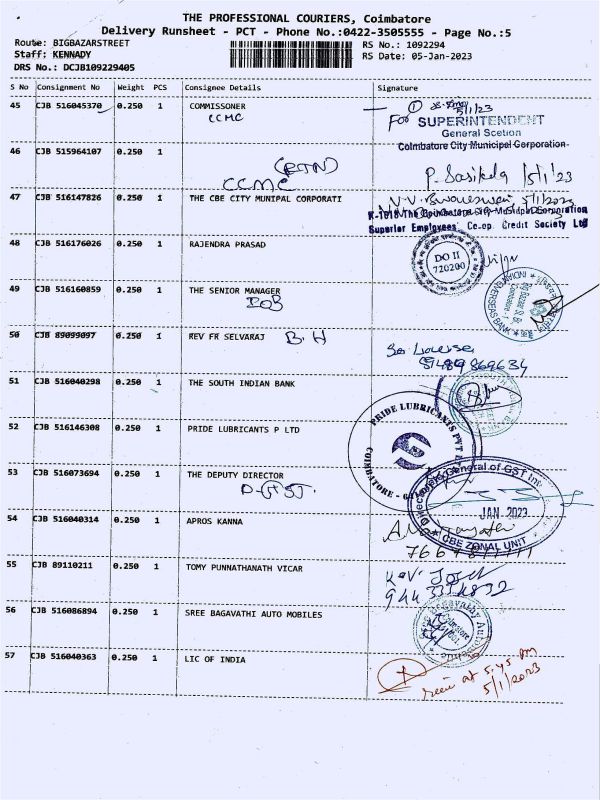 THE PROFESSIONAL COURIERS, Coimbatore
Delivery Runsheet - PCT - Phone No.:0422-3505555 - Page No.:5
Route: BIGBAZARSTREET
Staff: KENNADY
DRS No.: DCJB109229405
RS No.: 1092294
RS Date: 05-Jan-2023
S No Consignment No Weight PCS Consignee Details Signature
45 CJB 516045370 0.250 1 COMMISSONER
CCMC
5/1/23
For SUPERINTENDENT
General Scetion
Coimbatore City Municipal Corporation
46 CJB 515964107 0.250 1
CCMC
P. Sasikala 5/1/23
47 CJB 516147826 0.250 1 THE CBE CITY MUNIPAL CORPORATI
5/1/2023
K-1918 The Coimbatore City Municipal Corporation
Superior Employees' Co-op. Credit Society Ltd
48 CJB 516176026 0.250 1 RAJENDRA PRASAD
DO II
720200
49 CJB 516160859 0.250 1 THE SENIOR MANAGER
IOB
INDIAN OVERSEAS BANK
50 CJB 89099097 0.250 1 REV FR SELVARAJ
B.H
9489869634
51 CJB 516040298 0.250 1 THE SOUTH INDIAN BANK
52 CJB 516146308 0.250 1 PRIDE LUBRICANTS P LTD
PRIDE LUBRICANTS PVT
COIMBATORE
53 CJB 516073694 0.250 1 THE DEPUTY DIRECTOR
D-GST.
General of GST Int
JAN 2023
CBE ZONAL UNIT
54 CJB 516040314 0.250 1 APROS KANNA
55 CJB 89110211 0.250 1 TOMY PUNNATHANATH VICAR
K.V. JOSE
56 CJB 516086894 0.250 1 SREE BAGAVATHI AUTO MOBILES
57 CJB 516040363 0.250 1 LIC OF INDIA
at 5.45 pm
5/1/2023